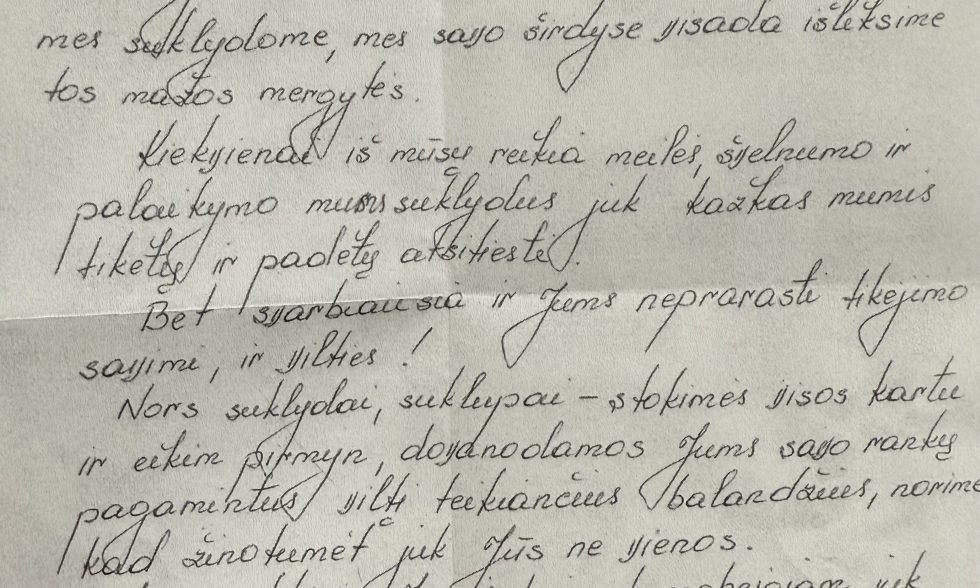 mes suklydome, mes savo širdyse visada išliksime
tos mažos mergytės.
Kiekvienai iš mūsų reikia meilės, švelnumo ir
palaikymo mums suklydus juk kažkas mumis
tikėtų ir padėtų atsitiesti.
Bet svarbiausia ir Jums neprarasti tikėjimo
savimi, ir vilties!
Nors suklydai, suklupai – stokimės visos kartu
ir eikim pirmyn, dovanodamos Jums savo rankų
pagamintus viltį teikiančius balandžius, norime
kad žinotumėt juk Jūs ne vienos.